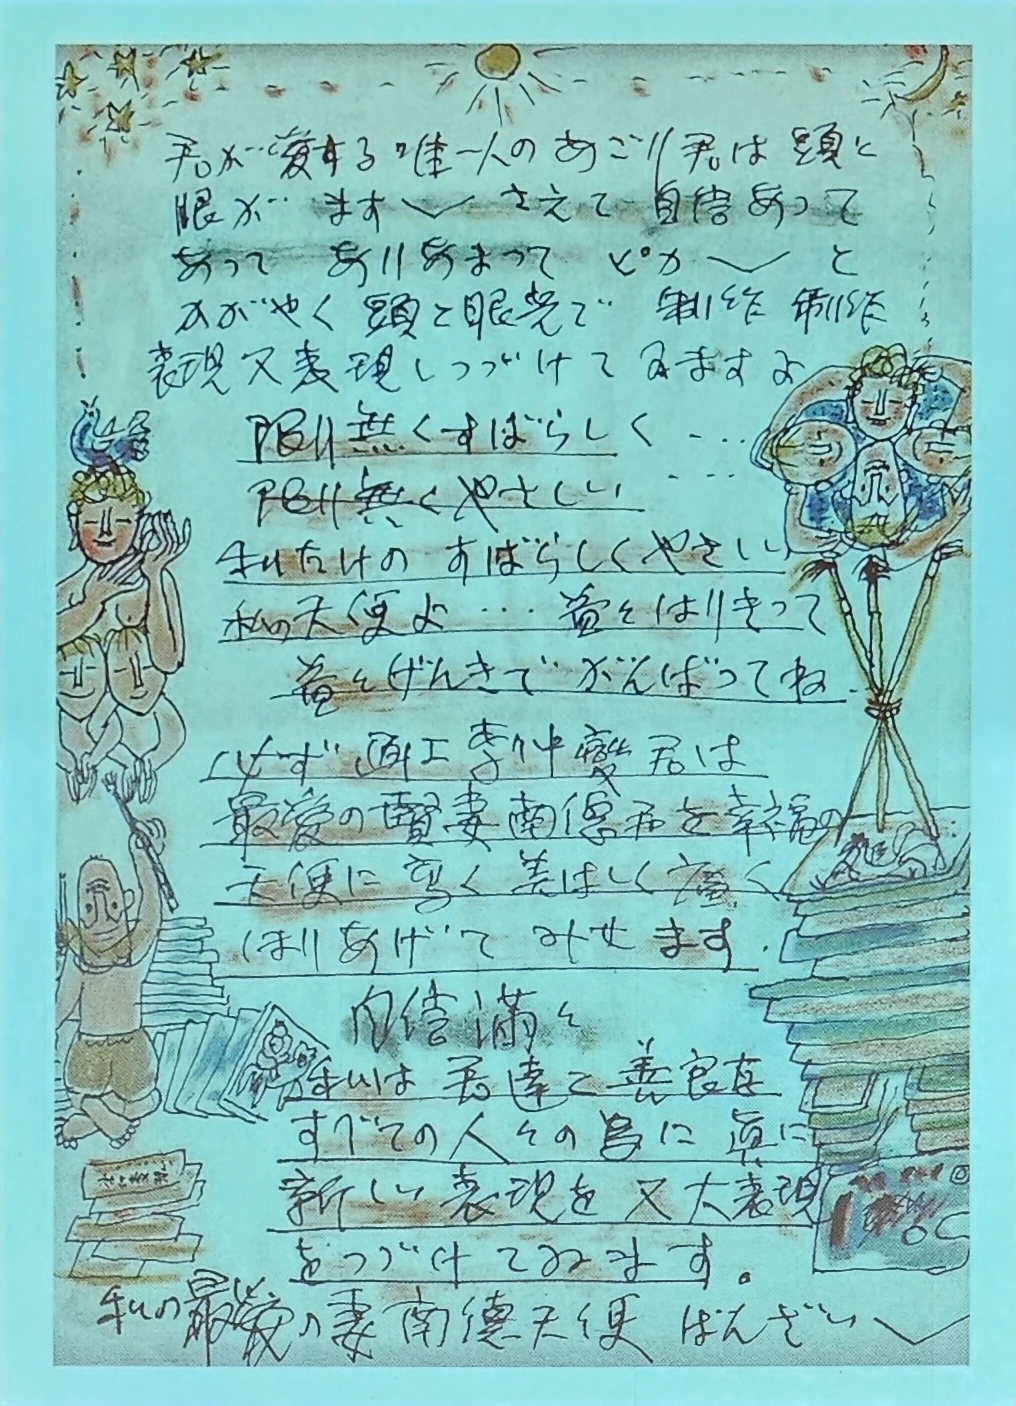 君が愛する唯一人のあごり君は頭と
眼がます〱さえて自信あって
あって ありあまって ピカ〱と
かがやく頭と眼光で 制作 制作
表現又表現しつづけてみますよ
限り無くすばらしく‥‥
限り無くやさしい‥‥
私だけの すばらしくやさしい
私の天使よ‥‥益々はりきって
益々げんきで がんばってね.
必ず 画工李仲燮君は
最愛の賢妻南德君を幸福の
天使に高く美はしく廣く
ほりあげて みせます.
自信満々
私は 君達と善良な
すべての人々の為に真に
新しい表現を 又大表現
をつづけてみます。
私の最愛の妻南德天使 ばんざい〱